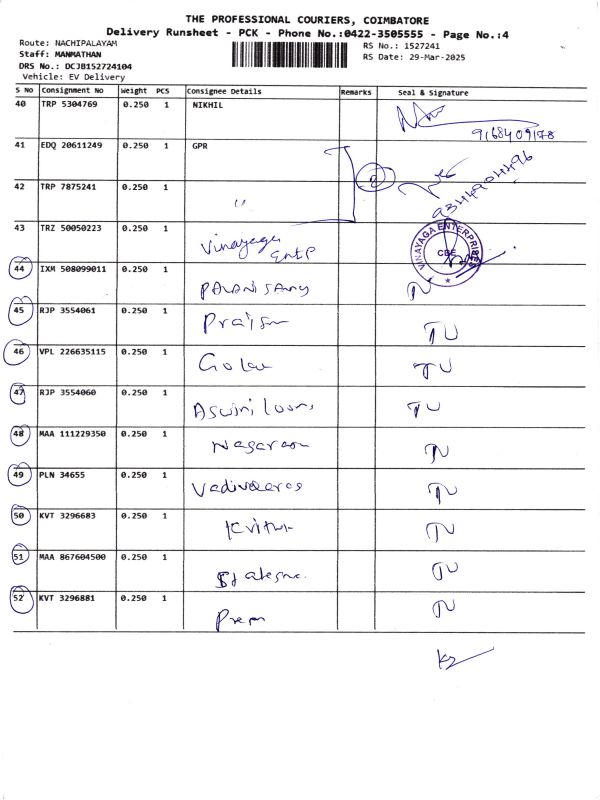 THE PROFESSIONAL COURIERS, COIMBATORE
Delivery Runsheet - PCK - Phone No.:0422-3505555 - Page No.:4
Route: NACHIPALAYAM
Staff: MANMATHAN
DRS No.: DCJB152724104
Vehicle: EV Delivery
RS No.: 1527241
RS Date: 29-Mar-2025
S NO Consignment No Weight PCS Consignee Details Remarks Seal & Signature
40 TRP 5304769 0.250 1 NIKHIL
9168409178
41 EDQ 20611249 0.250 1 GPR
2
9344904496
42 TRP 7875241 0.250 1 "
43 TRZ 50050223 0.250 1 Vinayaga EntP
VINAYAGA ENTERPRISES
CBE
44 IXM 508099011 0.250 1 PALANISAMY
45 RJP 3554061 0.250 1
46 VPL 226635115 0.250 1
47 RJP 3554060 0.250 1 Aswini
48 MAA 111229350 0.250 1
49 PLN 34655 0.250 1
50 KVT 3296683 0.250 1
51 MAA 867604500 0.250 1
52 KVT 3296881 0.250 1 Prem